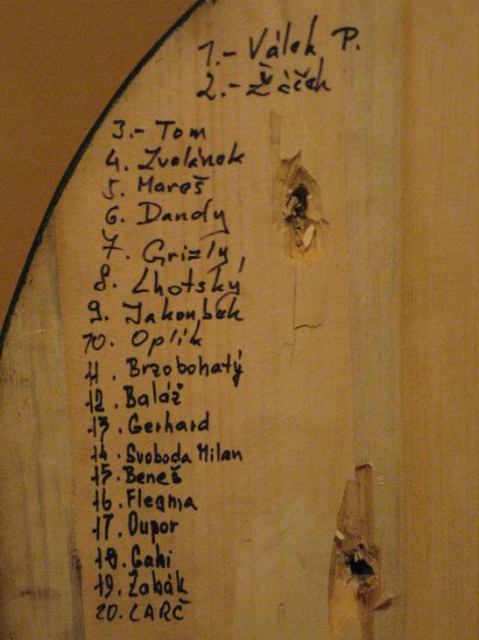 1.- Válek P.
2.- Žáček
3.- Tom
4. Zvolánek
5. Mareš
6. Dandy
7. Grizly
8. Lhotský
9. Jakoubek
10. Oplik
11. Brzobohatý
12. Baláž
13. Gerhard
14. Svoboda Milan
15. Beneš
16. Flegma
17. Dupor
18. Gahi
19. Žabák
20. LARČ